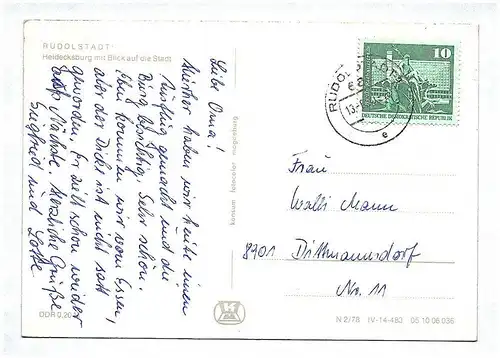 RUDOLSTADT
Heidecksburg mit Blick auf die Stadt
Liebe Oma!
Hierher haben wir heute einen
Ausflug gemacht und die
Burg besichtigt. Sehr schön.
Eben kommen wir vom Essen,
aber der Dicke ist nicht satt
geworden. Er zielt schon wieder
Nächste. Herzliche Grüße
Siegfried und Lotte
DDR 0,20
konsum fotocolor magdeburg
RUDOLSTADT
13.
e
10
DEUTSCHE DEMOKRATISCHE REPUBLIK
Frau
Walli Mann
8901 Dittmannsdorf
Nr. 11
N 2/78 IV-14-483 05 10 06 036